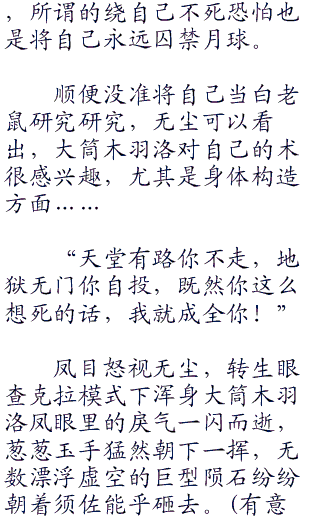 ，所谓的绕自己不死恐怕也
是将自己永远囚禁月球。
顺便没准将自己当白老
鼠研究研究，无尘可以看
出，大筒木羽洛对自己的术
很感兴趣，尤其是身体构造
方面……
“天堂有路你不走，地
狱无门你自投，既然你这么
想死的话，我就成全你！”
凤目怒视无尘，转生眼
查克拉模式下浑身大筒木羽
洛凤眼里的戾气一闪而逝，
葱葱玉手猛然朝下一挥，无
数漂浮虚空的巨型陨石纷纷
朝着须佐能乎砸去。(有意